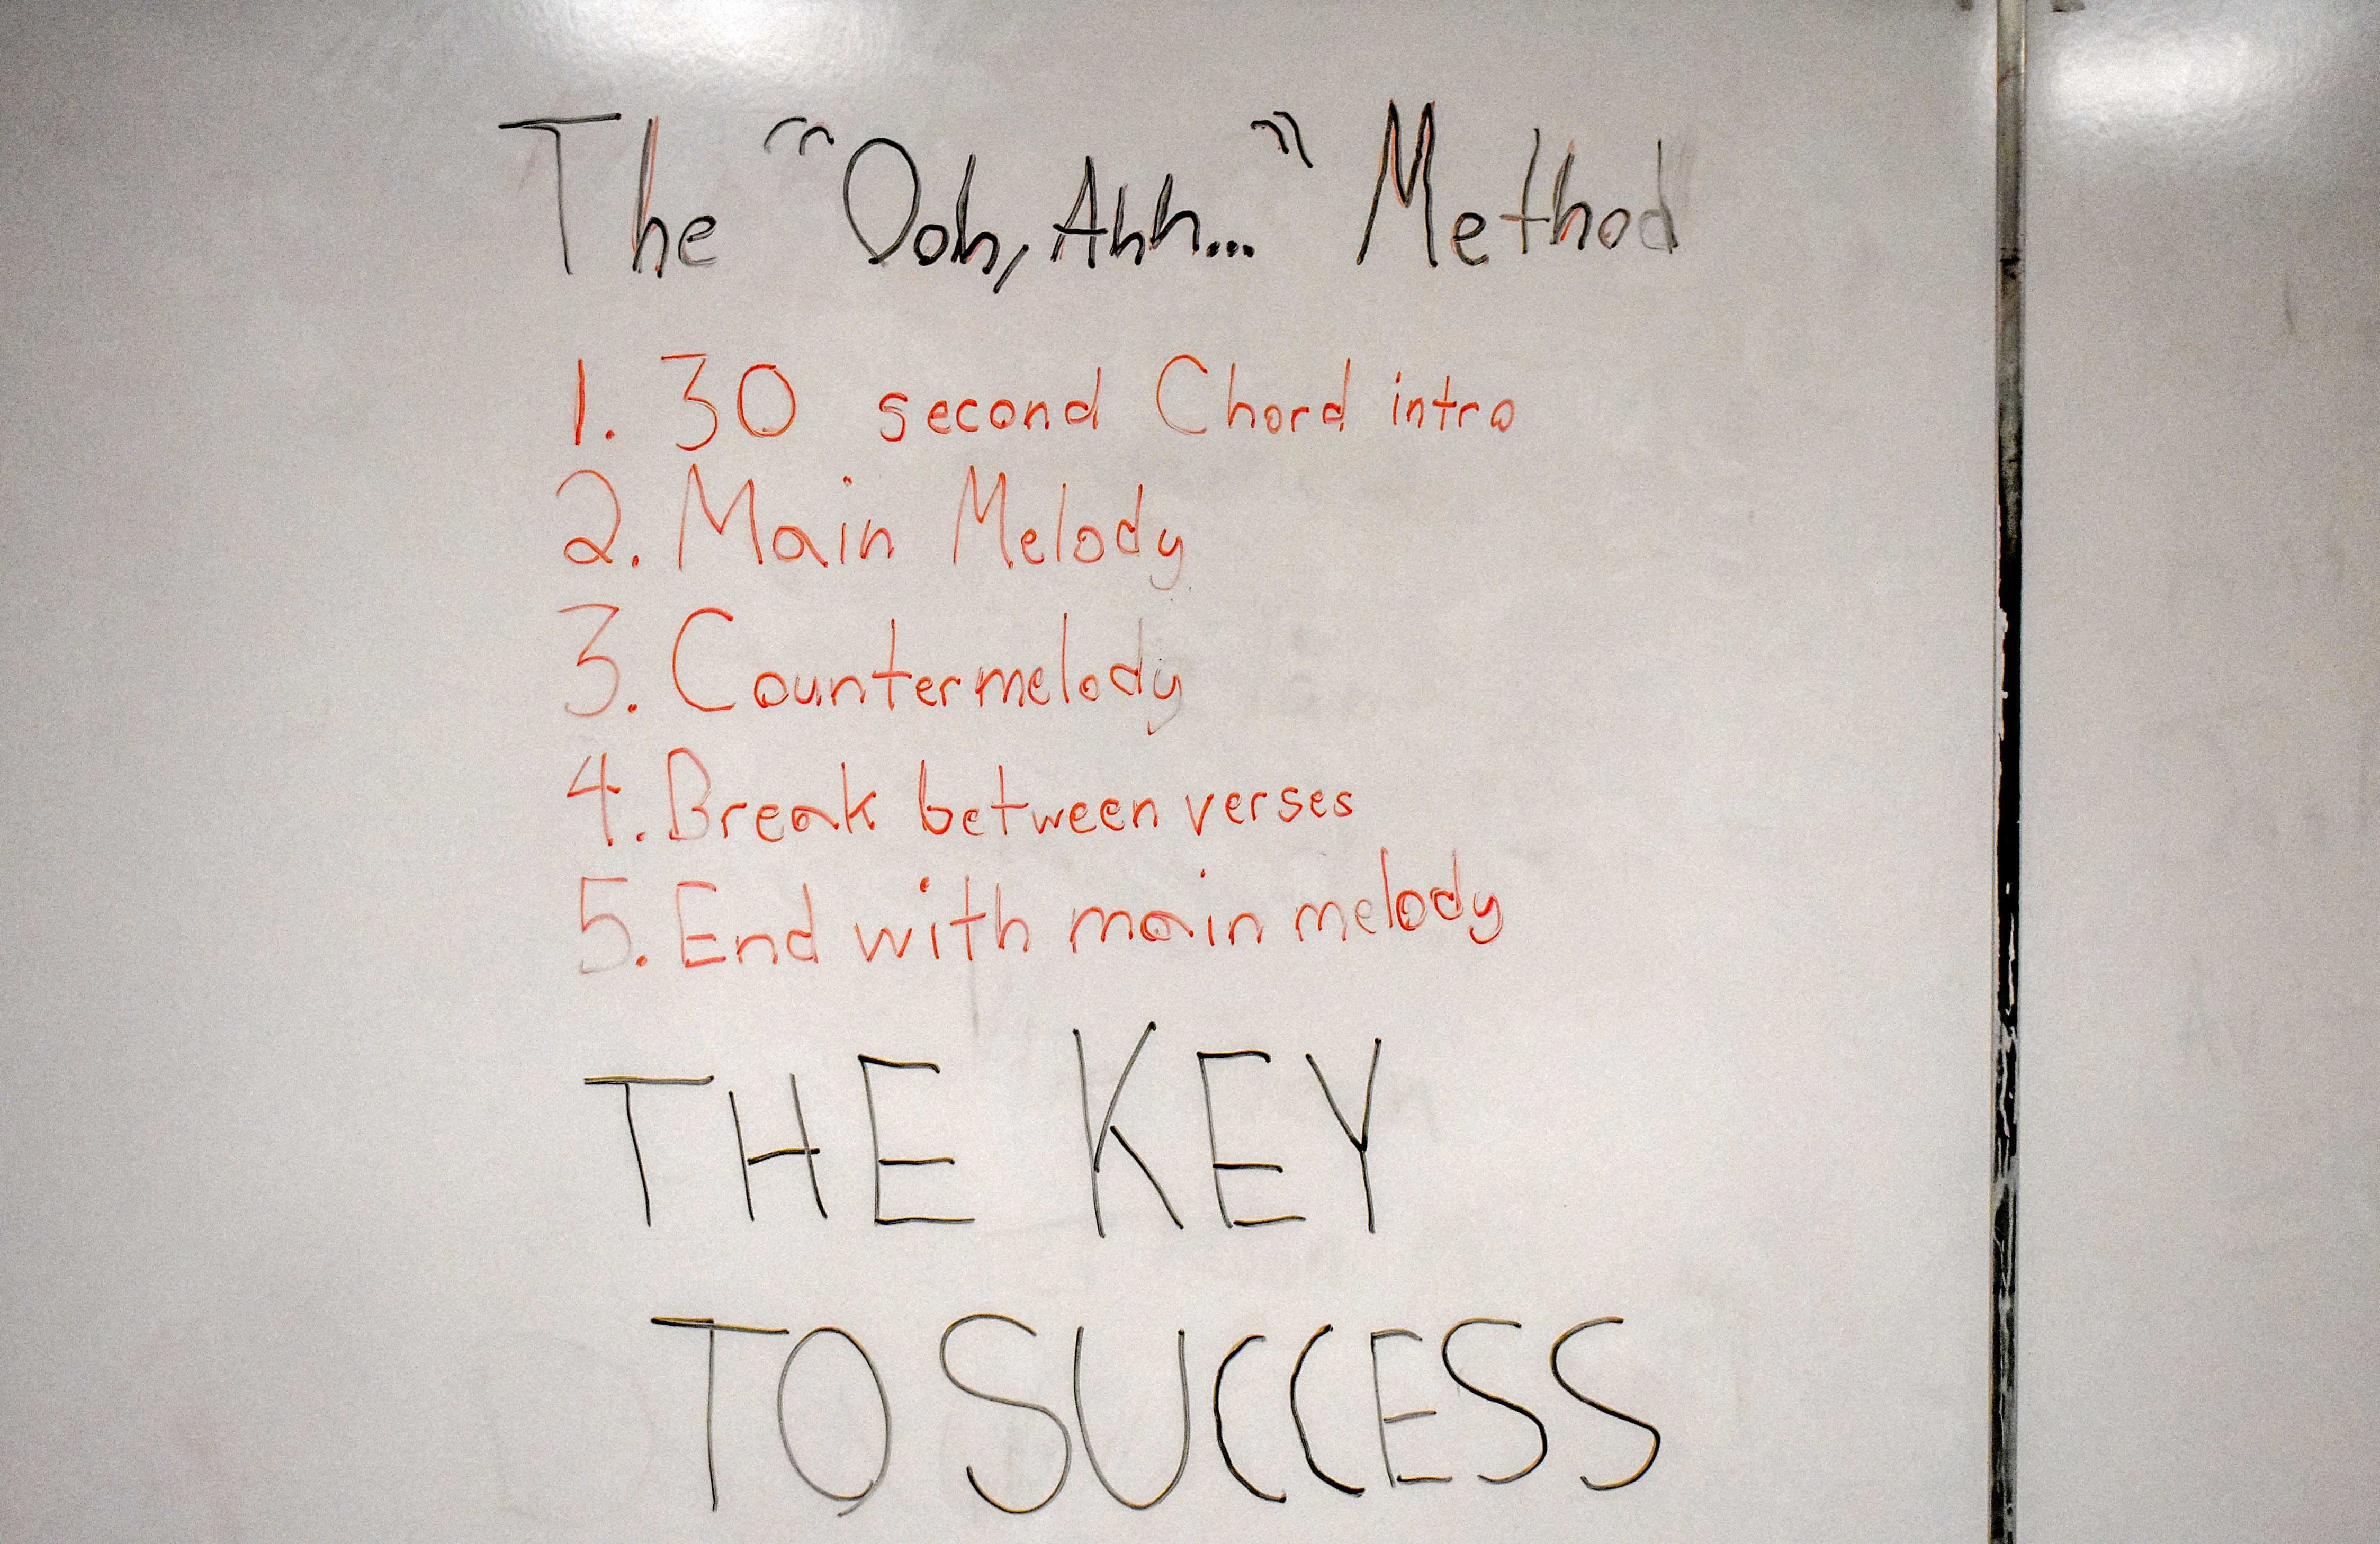 The "Ooh, Ahh..." Method
1. 30 second Chord intro
2. Main Melody
3. Countermelody
4. Break between verses
5. End with main melody
THE KEY
TO SUCCESS